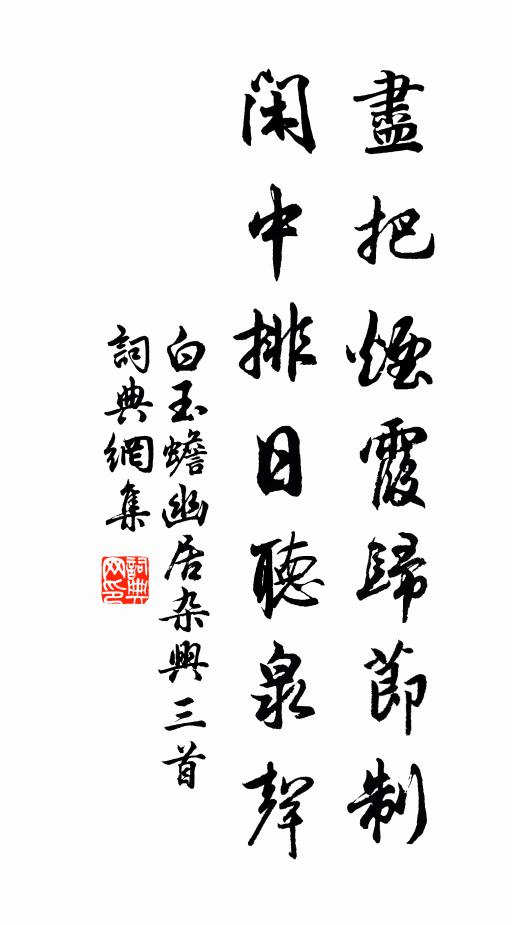 盡把煙霞歸節制
閑中排日聽泉聲
白玉蟾幽居杂興三首
詞典網集
詞典网印